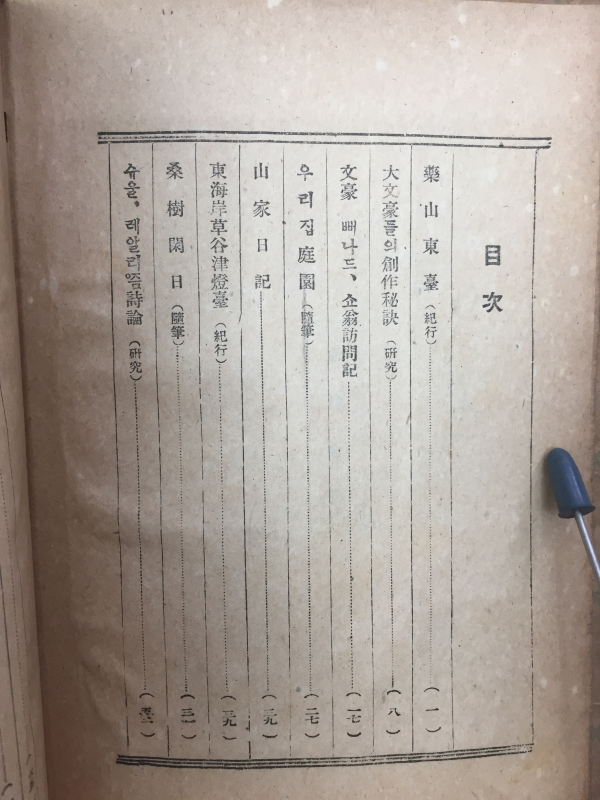 目次
藥山東臺(紀行)(一)
大文豪들의創作秘訣(研究)(八)
文豪 뻐나드、쇼翁訪問記(一七)
우리집庭園(隨筆)(二七)
山家日記(二九)
東海岸草谷津燈臺(紀行)(元)
桑樹閑日(隨筆)(三一)
슈울、레알리즘詩論(研究)